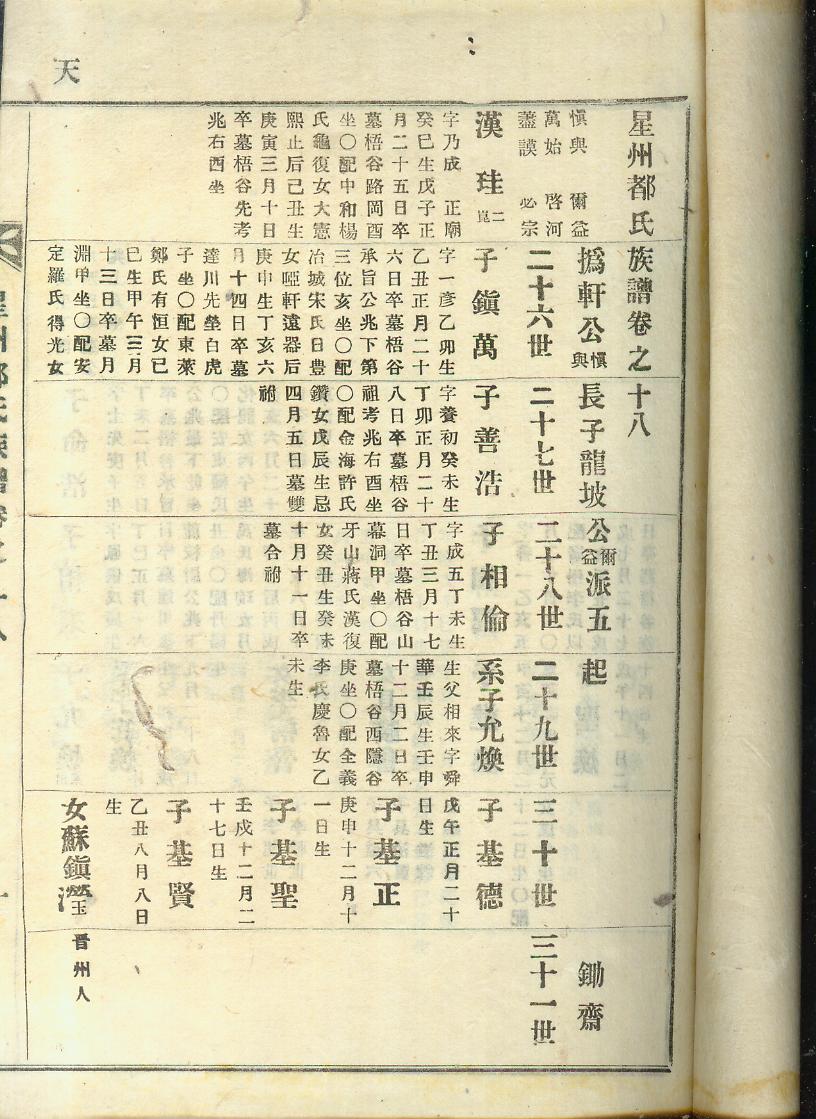 天
星州都氏族譜卷之十八
撝軒公愼與長子龍坡公爾益派五起 鋤齋
愼與 爾益
萬始 啓河
藎謨 必宗
二十六世
二十七世
二十八世
二十九世
三十世
三十一世
漢珪二崑
字乃成 正廟
癸巳生戊子正
月二十五日卒
墓梧谷路岡酉
坐〇配中和楊
氏龜復女大憲
熙止后己丑生
庚寅三月十日
卒墓梧谷先考
兆右酉坐
子鎭萬
字一彦乙卯生
乙丑正月二十
六日卒墓梧谷
承旨公兆下第
三位亥坐〇配
冶城宋氏日豊
女啞軒遠器后
庚申生丁亥六
月十四日卒墓
達川先塋白虎
子坐〇配東萊
鄭氏有恒女己
巳生甲午三月
十三日卒墓月
淵甲坐〇配安
定羅氏得光女
子善浩
字養初癸未生
丁卯正月二十
八日卒墓梧谷
祖考兆右酉坐
〇配金海許氏
鑽女戊辰生忌
四月五日墓雙
祔
子相倫
字成五丁未生
丁丑三月十七
日卒墓梧谷山
幕洞甲坐〇配
牙山蔣氏漢復
女癸丑生癸未
十月十一日卒
墓合祔
系子允煥
生父相來字舜
華壬辰生壬申
十二月二日卒
墓梧谷西隱谷
庚坐〇配全義
李氏慶魯女乙
未生
子基德
戊午正月二十
日生
子基正
庚申十二月十
一日生
子基聖
壬戌十二月二
十七日生
子基賢
乙丑八月八日
生
女蘇鎭瀅玉
晋州人